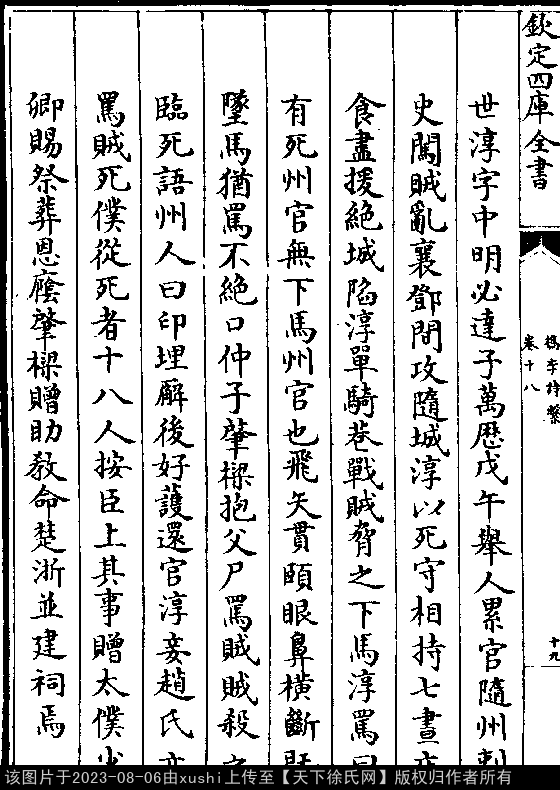 欽定四庫全書
檇李詩繫
卷十八
十九
世淳字中明必達子萬歴戊午舉人累官隨州刺
史闖賊亂襄鄧間攻隨城淳以死守相持七晝夜
食盡援絶城陷淳單騎巷戰賊脅之下馬淳罵曰
有死州官無下馬州官也飛矢貫頤眼鼻横斷既
墜馬猶罵不絶口仲子肇樑抱父尸罵賊賊殺之
臨死語州人曰印埋廨後好護還官淳妾趙氏亦
罵賊死僕從死者十八人按臣上其事贈太僕少
卿賜祭葬恩廕肇樑贈助教命楚浙並建祠焉
该图片于2023-08-06由xushi上传至【天下徐氏网】版权归作者所有